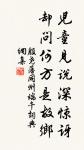 兒童見說深驚訝
卻問何方是故鄉
殷堯藩同州端午詞典
網集